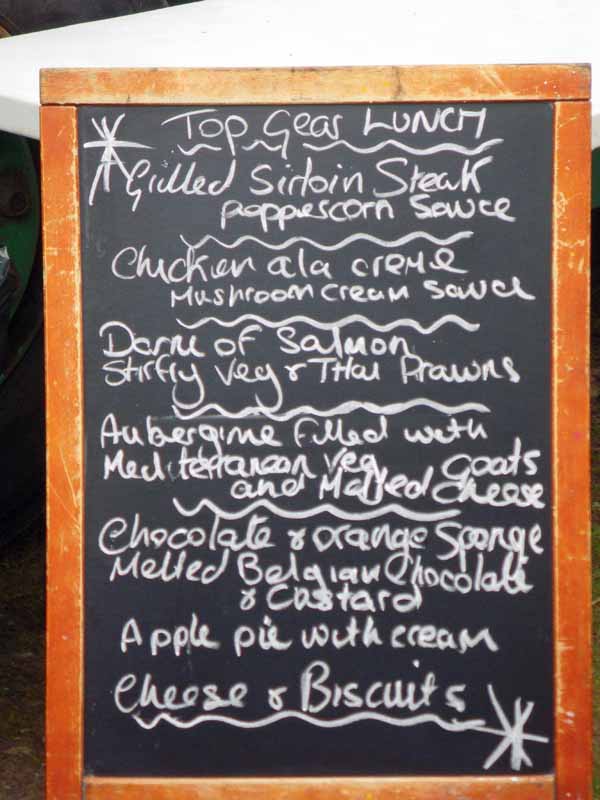 Top Gear LUNCH
Grilled Sirloin Steak
poppiescorn Sauce
Chicken ala creme
Mushroom Cream Sauce
Darne of Salmon
Stirfry Veg & Thai Prawns
Aubergine filled with
Mediterranean Veg Goats
and Melted Cheese
Chocolate & orange Sponge
Melted Belgian Chocolate
& Custard
Apple pie with cream
Cheese & Biscuits